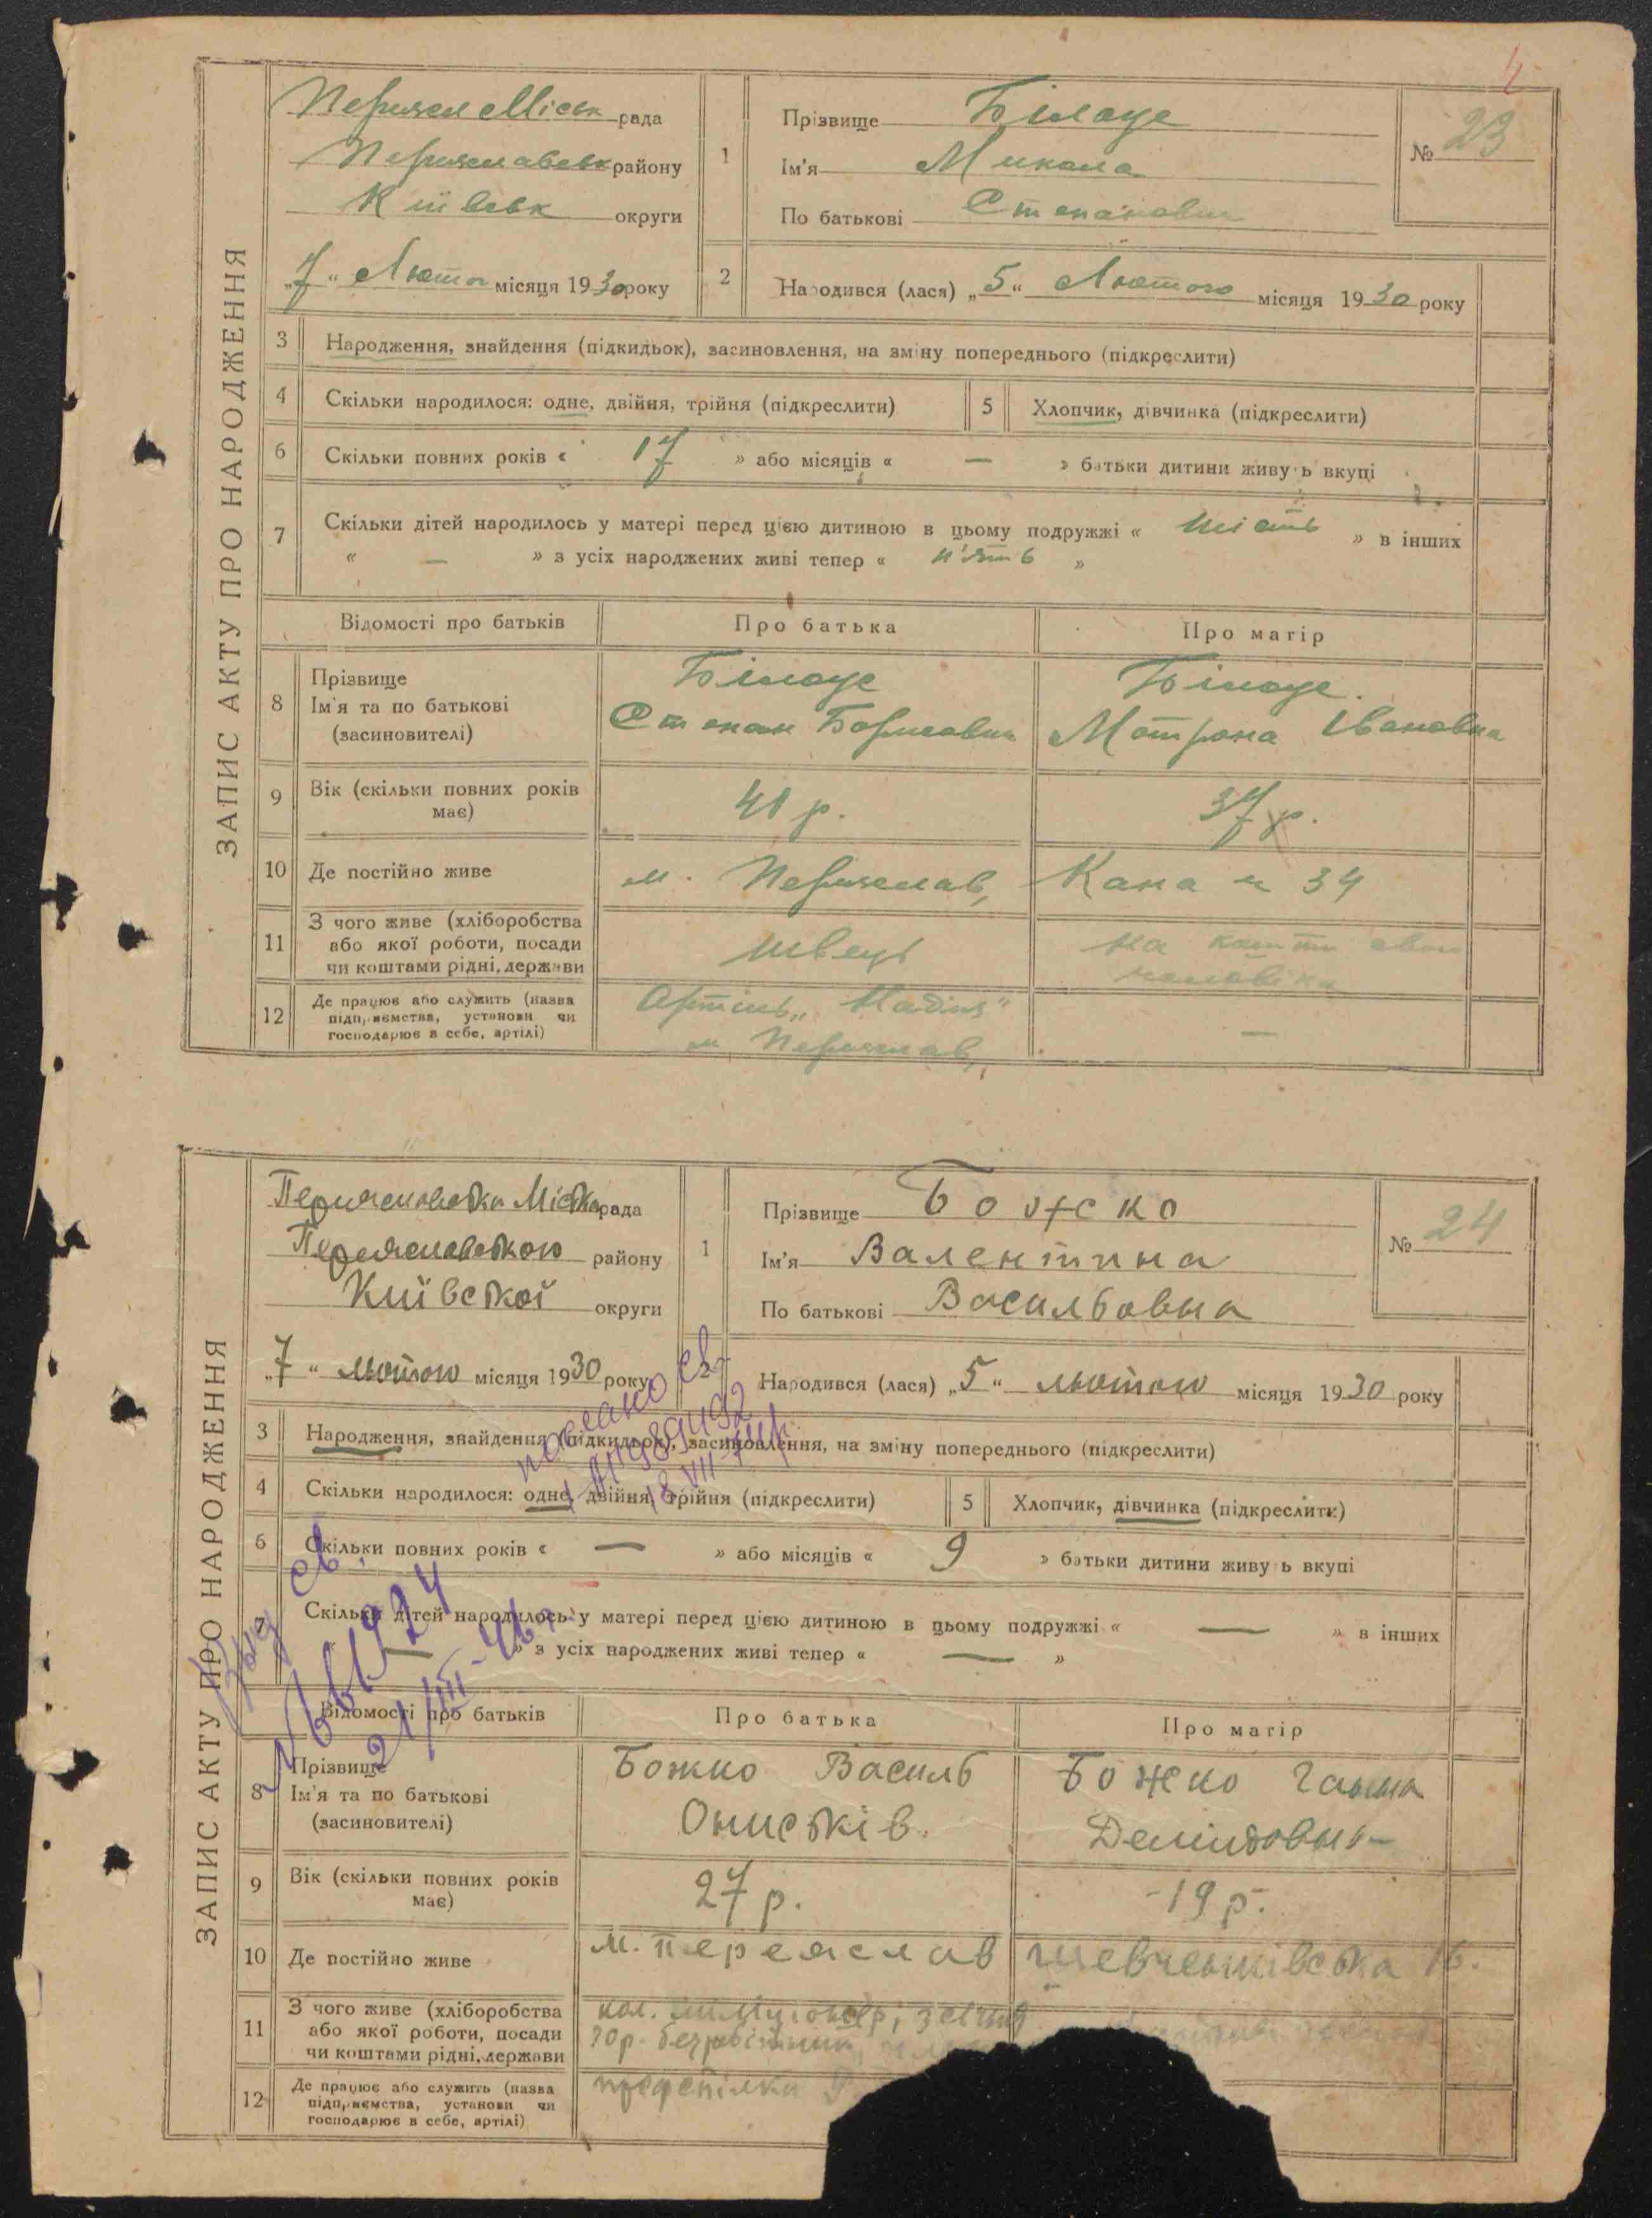 ЗАПИС АКТУ ПРО НАРОДЖЕННЯ
Переяслав Міськ рада
Переяславськ району
Київськ округи
„7“ Лютого місяця 1930 року
1
Прізвище Білоус
Ім'я Микола
По батькові Степанович
№ 23
2
Народився (лася) „5“ Лютого місяця 1930 року
3 Народження, знайдення (підкидьок), засиновлення, на зміну попереднього (підкреслити)
4 Скільки народилося: одне, двійня, трійня (підкреслити)
5 Хлопчик, дівчинка (підкреслити)
6 Скільки повних років « 17 » або місяців « — » батьки дитини живуть вкупі
7 Скільки дітей народилось у матері перед цією дитиною в цьому подружжі « шість » в інших
« — » з усіх народжених живі тепер « п'ять »
Відомості про батьків Про батька Про матір
8 Прізвище
Ім'я та по батькові
(засиновителі)
Білоус
Степан Борисович
Білоус.
Мотрона Івановна
9 Вік (скільки повних років
має)
41 р.
37 р.
10 Де постійно живе
м. Переяслав,
Кана 34
11 З чого живе (хліборобства
або якої роботи, посади
чи коштами рідні, держави
швець
на кошти
чоловіка
12 Де працює або служить (назва
підприємства, установи чи
господарює в себе, артілі)
Артіль „Надія“
м. Переяслав,
—
ЗАПИС АКТУ ПРО НАРОДЖЕННЯ
Переяславська Міська рада
Переяславського району
Київської округи
„7“ лютого місяця 1930 року
1
Прізвище Божко
Ім'я Валентина
По батькові Васильовна
№ 24
2
Народився (лася) „5“ лютого місяця 1930 року
3 Народження, знайдення (підкидьок), засиновлення, на зміну попереднього (підкреслити)
4 Скільки народилося: одне, двійня, трійня (підкреслити)
5 Хлопчик, дівчинка (підкреслити)
6 Скільки повних років « — » або місяців « 9 » батьки дитини живуть вкупі
7 Скільки дітей народилось у матері перед цією дитиною в цьому подружжі « — » в інших
« — » з усіх народжених живі тепер « — »
Відомості про батьків Про батька Про матір
8 Прізвище
Ім'я та по батькові
(засиновителі)
Божко Василь
Ониськів.
Божко Ганна
Демидовна
9 Вік (скільки повних років
має)
27 р.
19 р.
10 Де постійно живе
м. Переяслав
Шевченківська 16.
11 З чого живе (хліборобства
або якої роботи, посади
чи коштами рідні, держави
кол. міліціонер, з січня
30 р. безробітний,
12 Де працює або служить (назва
підприємства, установи чи
господарює в себе, артілі)
профспілки